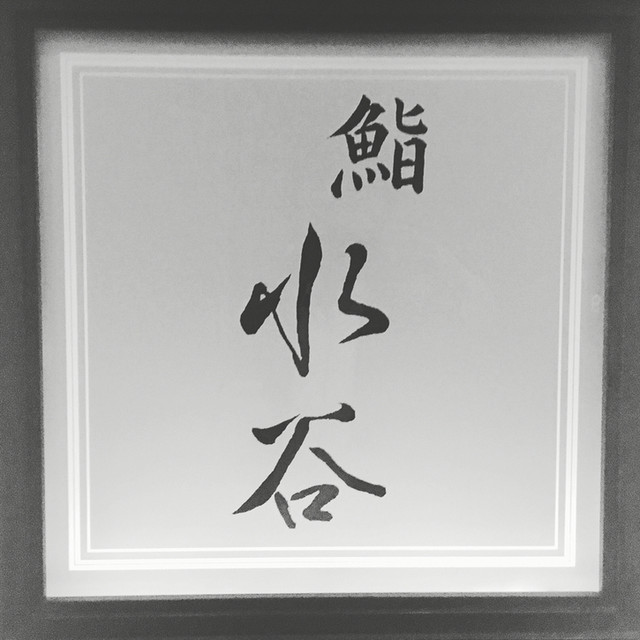 鮨
水谷